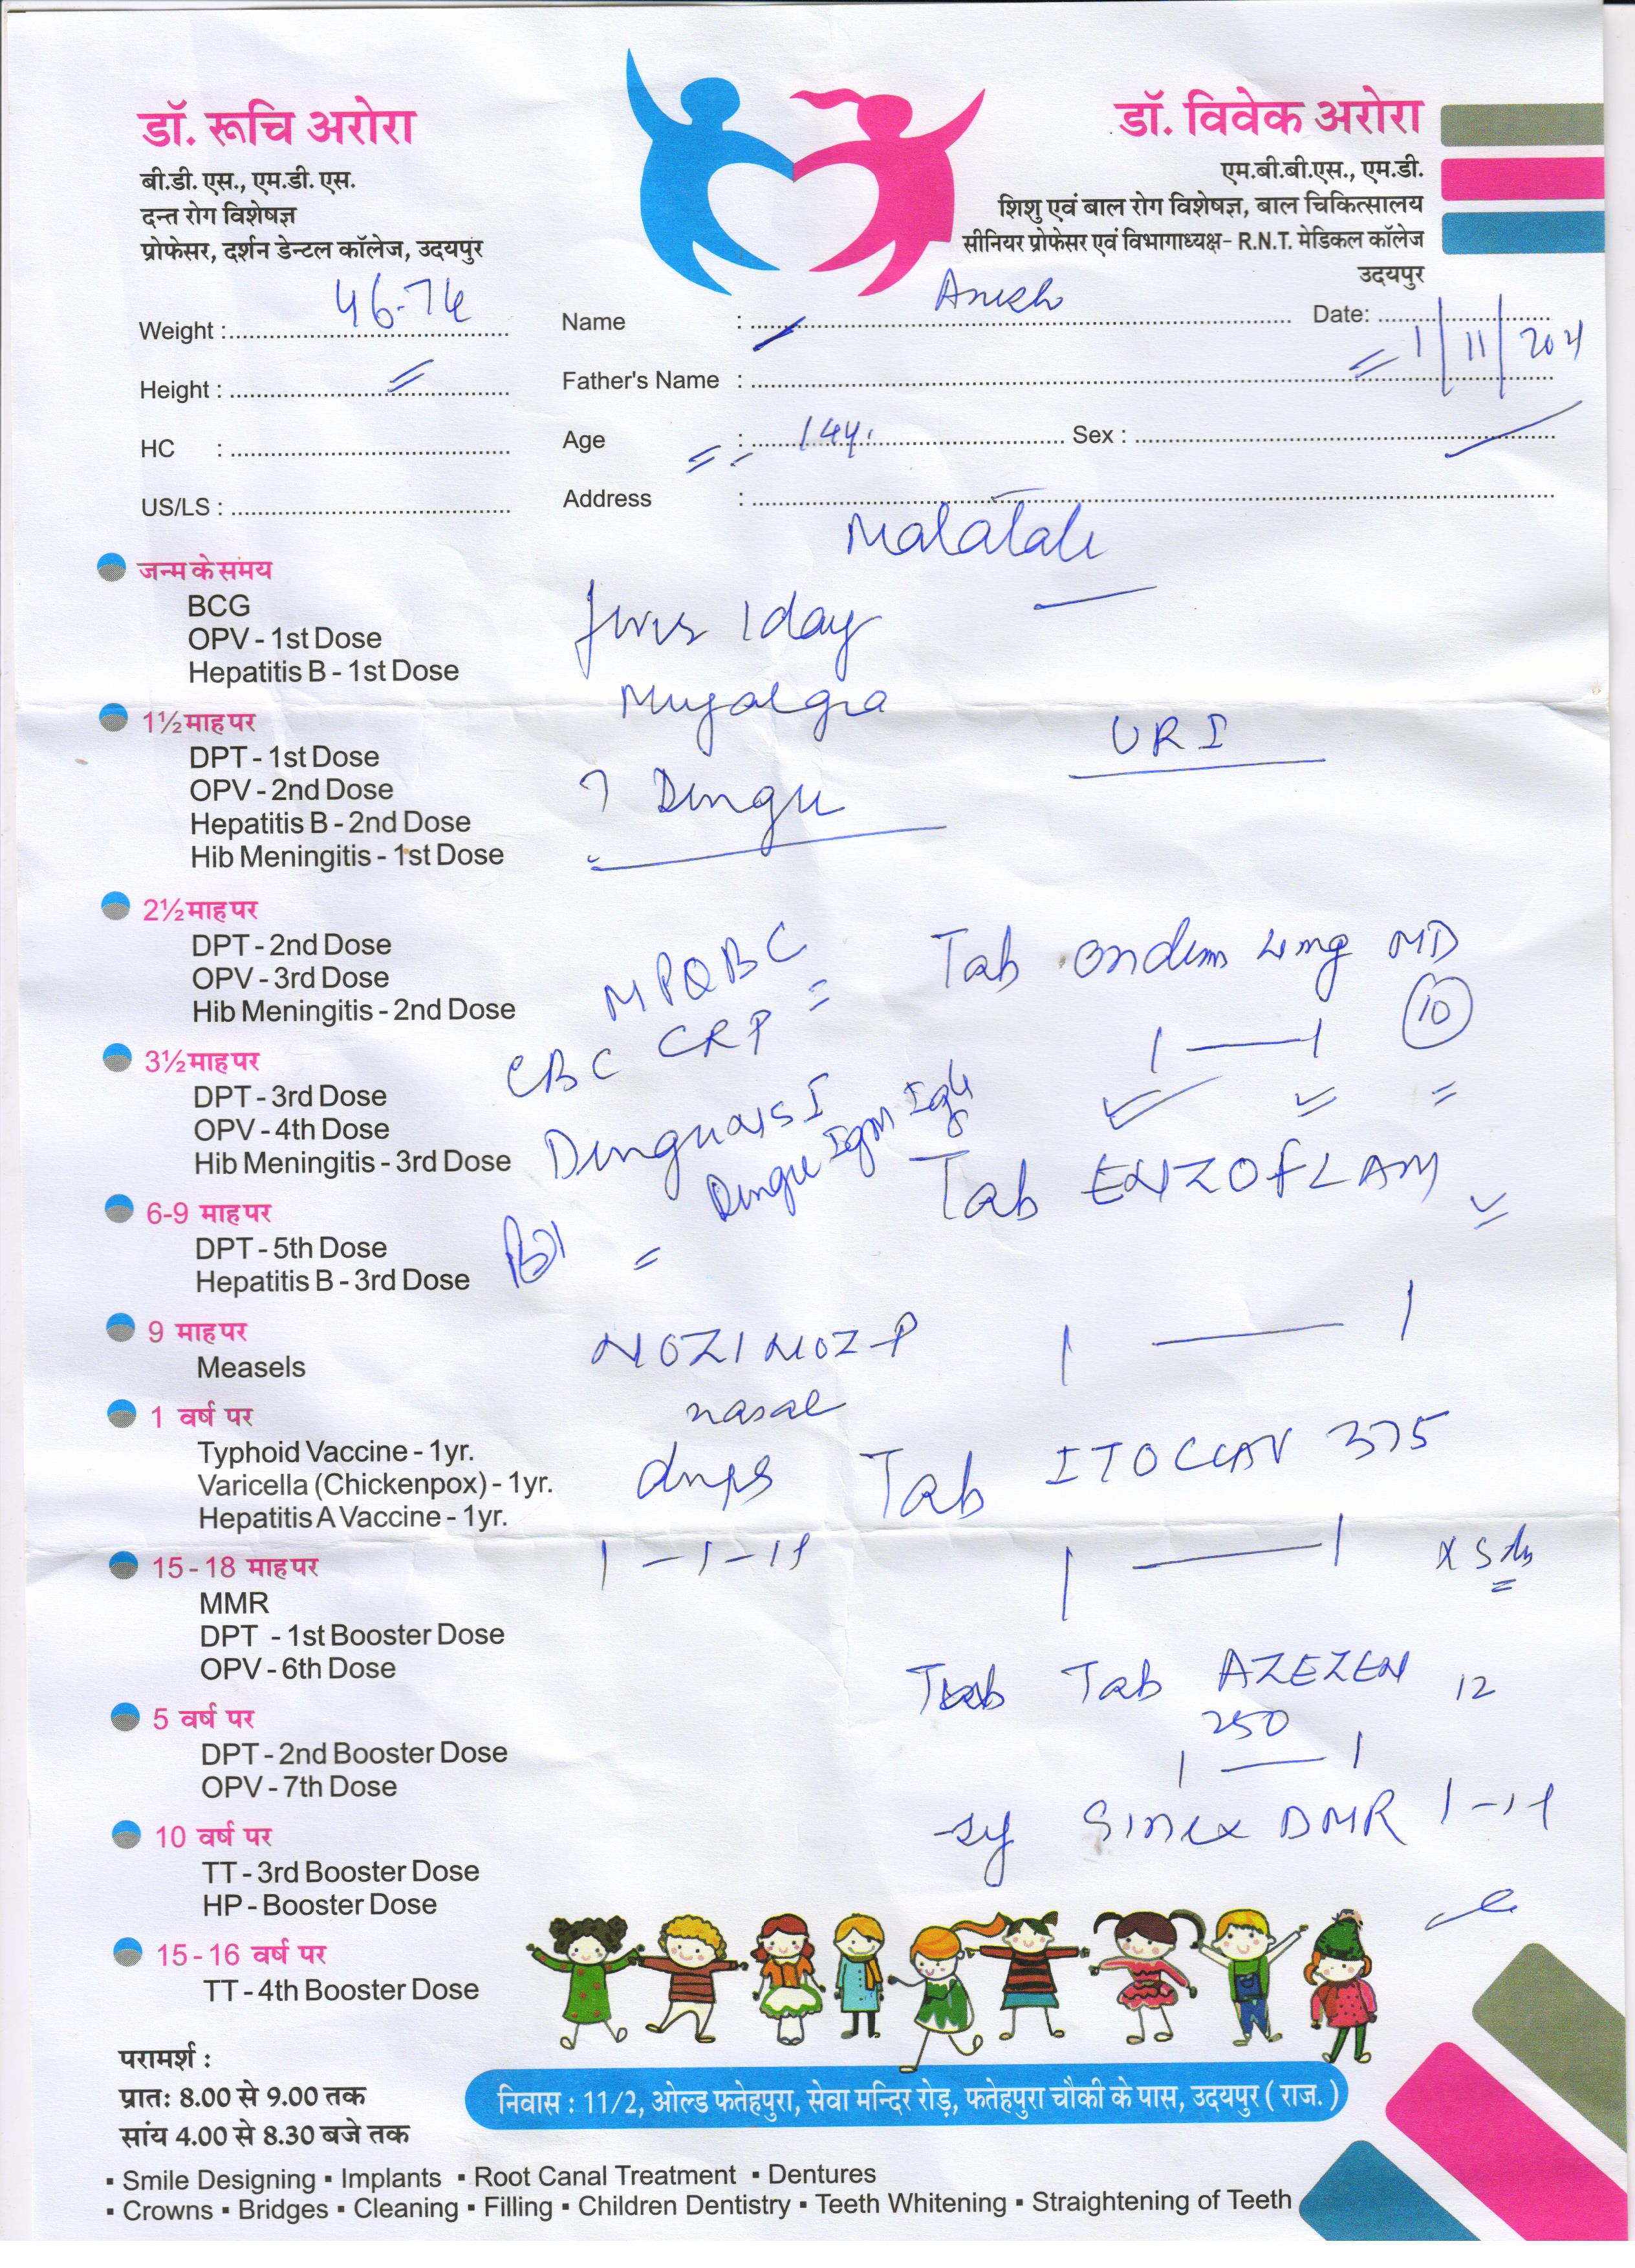 डॉ. रूचि अरोरा
बी.डी. एस., एम.डी. एस.
दन्त रोग विशेषज्ञ
प्रोफेसर, दर्शन डेन्टल कॉलेज, उदयपुर
डॉ. विवेक अरोरा
एम.बी.बी.एस., एम.डी.
शिशु एवं बाल रोग विशेषज्ञ, बाल चिकित्सालय
सीनियर प्रोफेसर एवं विभागाध्यक्ष- R.N.T. मेडिकल कॉलेज
उदयपुर
Weight : 46.74
Height :
HC :
US/LS :
Name :
Date: 1/11/2021
Father's Name :
Age : 14y. Sex :
Address :
1 day
? Dengu
URI
MPQBC
CBC CRP
Dengu IgM IgG
Tab Ondem 4mg MD
1 — 1 10
Tab ENZOFLAM
1 — 1
NOZINOZ-P
nasal
drops
1-1-1
Tab ITOCLAV 375
1 — 1 x 5
Tab AZEZEN 12
250
1 — 1
Sy Sinex DMR 1-1-1
जन्म के समय
BCG
OPV - 1st Dose
Hepatitis B - 1st Dose
1½ माह पर
DPT - 1st Dose
OPV - 2nd Dose
Hepatitis B - 2nd Dose
Hib Meningitis - 1st Dose
2½ माह पर
DPT - 2nd Dose
OPV - 3rd Dose
Hib Meningitis - 2nd Dose
3½ माह पर
DPT - 3rd Dose
OPV - 4th Dose
Hib Meningitis - 3rd Dose
6-9 माह पर
DPT - 5th Dose
Hepatitis B - 3rd Dose
9 माह पर
Measels
1 वर्ष पर
Typhoid Vaccine - 1yr.
Varicella (Chickenpox) - 1yr.
Hepatitis A Vaccine - 1yr.
15 - 18 माह पर
MMR
DPT - 1st Booster Dose
OPV - 6th Dose
5 वर्ष पर
DPT - 2nd Booster Dose
OPV - 7th Dose
10 वर्ष पर
TT - 3rd Booster Dose
HP - Booster Dose
15 - 16 वर्ष पर
TT - 4th Booster Dose
परामर्श :
प्रातः 8.00 से 9.00 तक
सांय 4.00 से 8.30 बजे तक
निवास : 11/2, ओल्ड फतेहपुरा, सेवा मन्दिर रोड़, फतेहपुरा चौकी के पास, उदयपुर ( राज. )
▪ Smile Designing ▪ Implants ▪ Root Canal Treatment ▪ Dentures
▪ Crowns ▪ Bridges ▪ Cleaning ▪ Filling ▪ Children Dentistry ▪ Teeth Whitening ▪ Straightening of Teeth